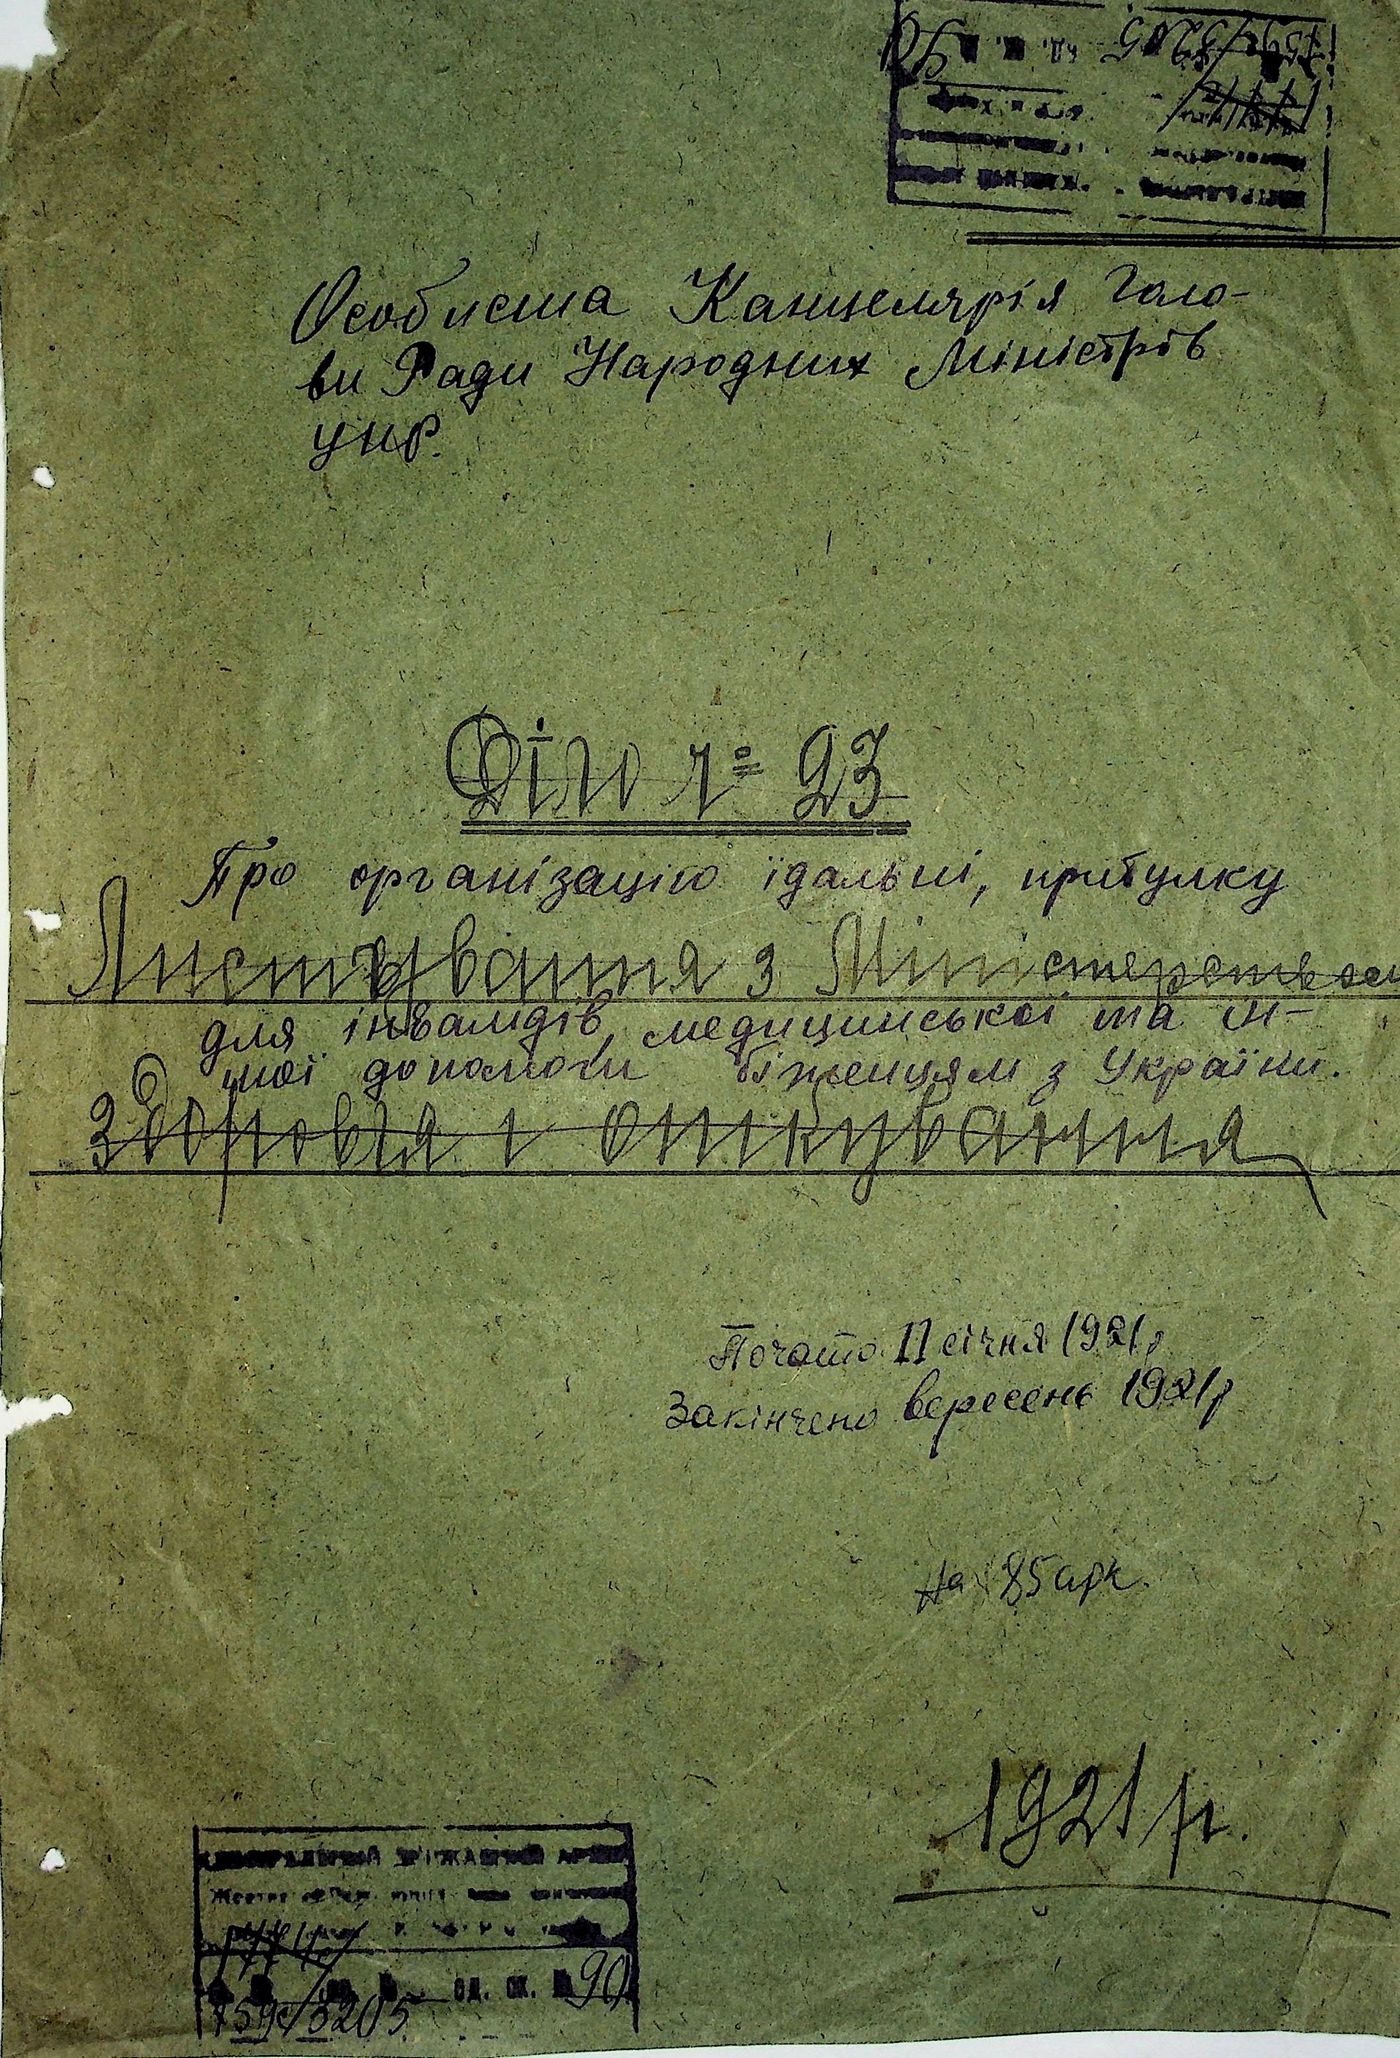 Особиста Канцелярія Голо-
ви Ради Народних Міністрів
УНР.
Діло ч 23
Про організацію їдальні, притулку
Листування з Міністерством
для інвалідів, медицинської та ін-
шої допомоги біженцям з України.
Здоровля і опікування
Почато 11 січня 1921 р
Закінчено вересень 1921 р
На 85 арк.
1921 р.
ЦЕНТРАЛЬНИЙ ДЕРЖАВНИЙ АРХІВ
од. зб. № 90
3205